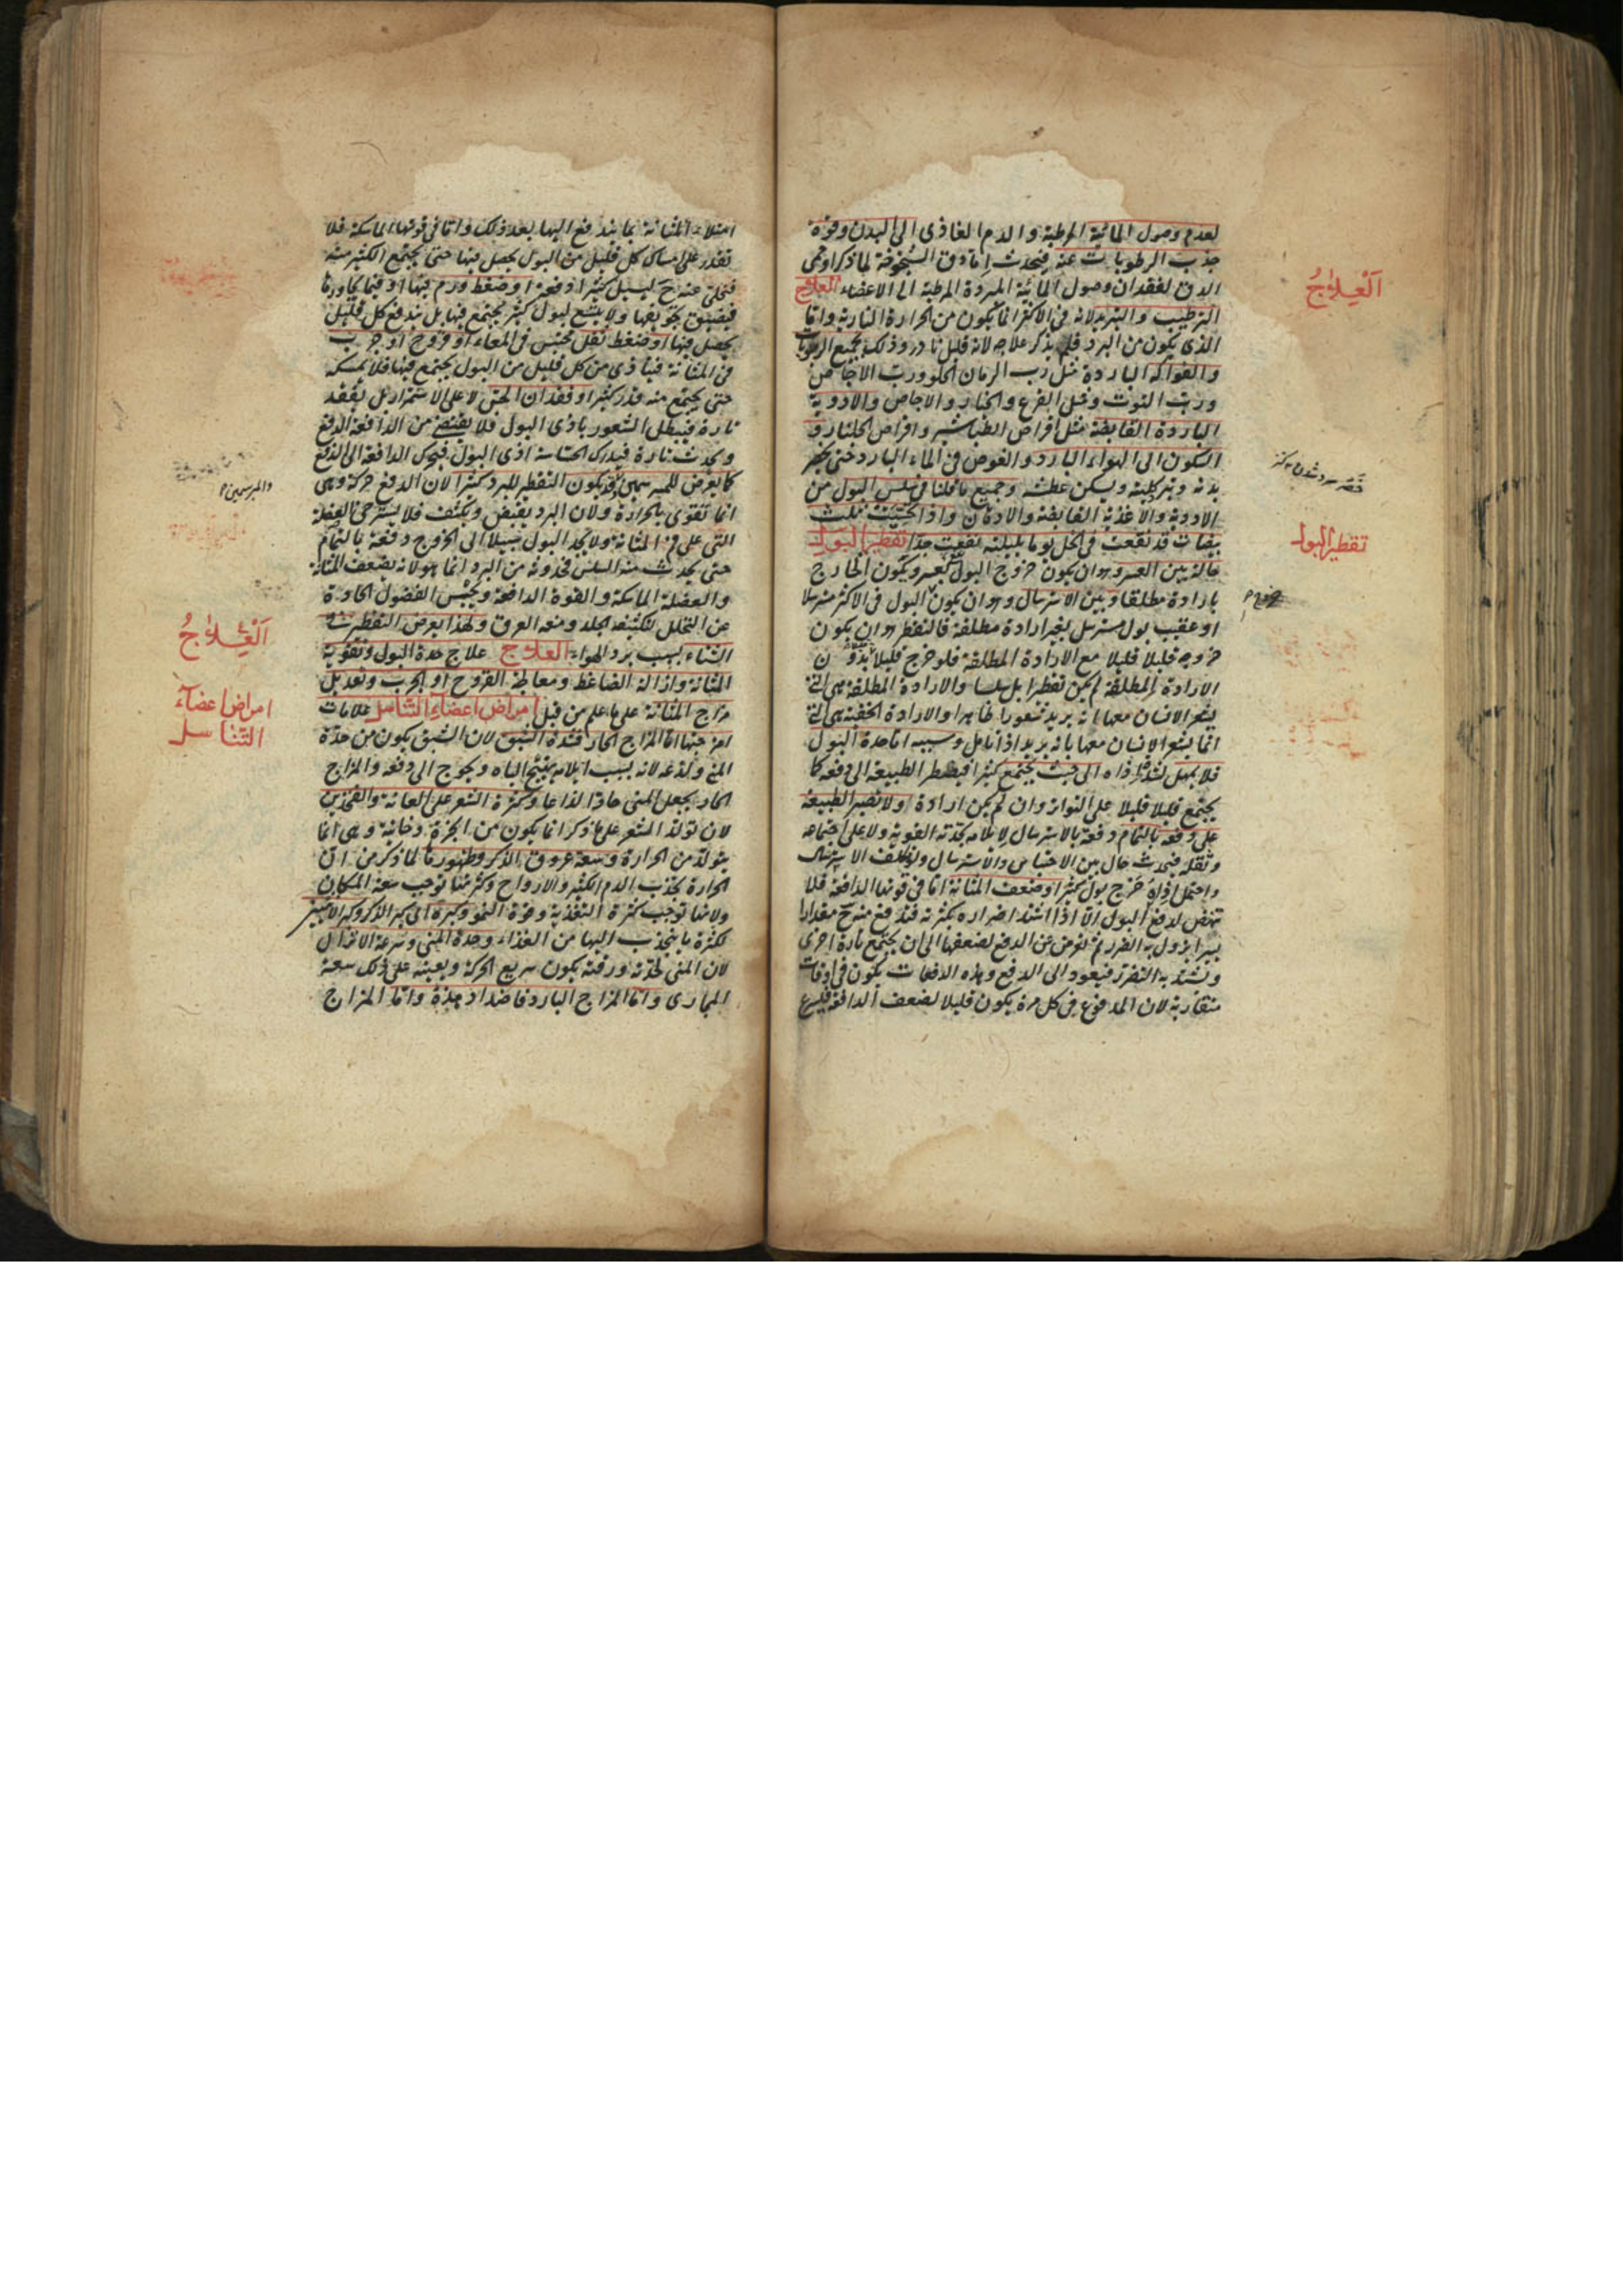 لعدم وصول المائية المرطبة والدم الغاذى الى البدن وقوة
جذب الرطوبات عنه فيحدث اما دق الشيخوخة لما ذكر او حمى
الدق لفقدان وصول المائية المبردة المرطبة الى الاعضاء العلاج
الترطيب والتبريد لانه فى الاكثر انما يكون من الحرارة النارية واما
الذى يكون من البرد فلم يذكر علاجه لانه قليل نادر وذلك بجميع الربوبات
والفواكه الباردة مثل رب الرمان الحلو ورب الاجاص
ورب التوت ومثل القرع والخيار والاجاص والادوية
الباردة القابضة مثل اقراص الطباشير واقراص الجلنار و
السكون الى الهواء البارد والغوص فى الماء البارد حتى يخصر
بدنه وتبرد كليته ويسكن عطشه وجميع ما قلنا فى سلس البول من
الادوية والاغذية القابضة والادهان واذا تحسيت ثلث
بيضات قد نقعت فى الخل يوما بليلته نفعت جدا تقطير البول
حالة بين العسر وهو ان يكون خروج البول بعسر ويكون الخارج
بارادة مطلقا وبين الاسترسال وهو ان يكون البول فى الاكثر مسترسلا
او عقيب بول مسترسل بغير ارادة مطلقة فالتقطير هو ان يكون
خروجه قليلا قليلا مع الارادة المطلقة فلو خرج قليلا بدون
الارادة المطلقة لم يكن تقطيرا بل سلسا والارادة المطلقة هى التى
يشعر الانسان معها انه يريد شعورا ظاهرا والارادة الخفية هى التى
انما يشعر الانسان معها بانه يريد اذا تامل وسببه اما حدة البول
فلا يمهل لشدة اذاه الى حيث يجتمع كثيرا فيضطر الطبيعة الى دفعه كما
يجتمع قليلا قليلا على التواتر وان لم يكن ارادة ولا تصبر الطبيعة
على دفعه بالتمام دفعة بالاسترسال لايلامه بحدته القوية ولا على اجتماعه
وثقله فيحدث حال بين الاحتباس والاسترسال ولو تكلف الاسترسال
واحتمل اذاه خرج بول كثير او ضعف المثانة اما فى قوتها الدافعة فلا
تنهض لدفع البول الا اذا اشتد اضراره بكثرته فتدفع منه ح مقدارا
يسيرا يزول به الضرر ثم تعرض عن الدفع لضعفها الى ان يجتمع تارة اخرى
ويشتد به التضرر فيعود الى الدفع وهذه الدفعات يكون فى اوقات
متقاربة لان المدفوع فى كل مرة يكون قليلا لضعف الدافعة فيسرع
اَلْعِلَاجُ
تقطير البول
امتلاء المثانة بما يندفع اليها بعد ذلك واما فى قوتها الماسكة فلا
تقدر على امساك كل قليل من البول يحصل فيها حتى يجتمع الكثير منه
فتخلى عنه ح ليسيل كثيرا دفعة او ضغط ورم فيها او فيما يجاورها
فيضيق تجويفها ولا يتسع لبول كثير يجتمع فيها بل يندفع كل قليل
يحصل فيها او ضغط ثفل محتبس فى المعاء او قروح او جرب
فى المثانة فيتاذى من كل قليل من البول يجتمع فيها فلا يمسكه
حتى يجتمع منه قدر كثير او فقدان الحس لا على الاستمرار بل يفقد
تارة فيبطل الشعور باذى البول فلا يقتضى من الدافعة الدفع
ويحدث تارة فيدرك الحاسة اذى البول فيحرك الدافعة الى الدفع
كما يعرض للمبرسمين وقد يكون التقطير للبرد كثيرا لان الدفع حركة وهى
انما تقوى بالحرارة ولان البرد يقبض ويكثف فلا يسترخى العضلة
التى على فم المثانة ولا يجد البول سبيلا الى الخروج دفعة بالتمام
حتى يحدث منه السلس فحدوثه من البرد انما هو لانه يضعف المثانة
والعضلة الماسكة والقوة الدافعة ويحبس الفضول الحادة
عن التحلل لتكثيفه الجلد ومنعه العرق ولهذا يعرض التقطير فى
الشتاء بسبب برد الهواء العلاج علاج حدة البول وتقوية
المثانة وازالة الضاغط ومعالجة القروح او الجرب وتعديل
مزاج المثانة على ما علم من قبل امراض اعضاء التناسل علامات
امزجتها اما المزاج الحار فشدة الشبق لان الشبق يكون من حدة
المنى ولذعه لانه بسبب ايلامه يهيج الباه ويحوج الى دفعه والمزاج
الحار يجعل المنى حادا لذاعا وكثرة الشعر على العانة والفخذين
لان تولد الشعر على ما ذكر انما يكون من ابخرة دخانية وهى انما
يتولد من الحرارة وسعة عروق الذكر وظهورها لما ذكر من ان
الحرارة تجذب الدم الكثير والارواح وكثرتها توجب سعة المكان
ولانها توجب كثرة التغذية وقوة النمو وكبره اى كبر الذكر وكبر الانثيين
لكثرة ما ينجذب اليها من الغذاء وحدة المنى وسرعة الانزال
لان المنى لحدته ورقته يكون سريع الحركة ويعينه على ذلك سعة
المجارى واما المزاج البارد فاضداد هذه واما المزاج
والمبرسمين
اَلْعِلَاجُ
امراض اعضآء
التناسل